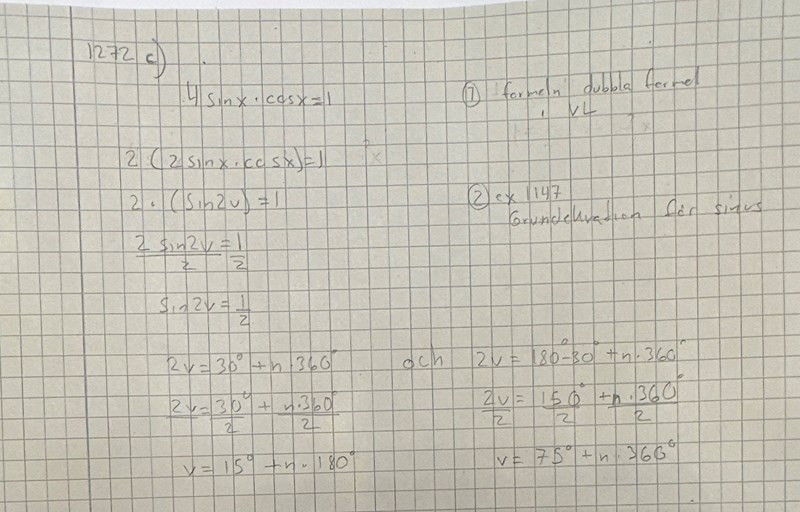 1272 c)
4 sinx · cosx = 1
① formeln dubbla formel
i VL
2 (2 sinx · cosx) = 1
2 · (sin2v) = 1
② ex 1147
Grundekvation för sinus
2 sin2v/2 = 1/2
sin2v = 1/2
2v = 30° + n 360° och 2v = 180° - 30° + n · 360°
2v = 30°/2 + n · 360°/2
2v/2 = 150°/2 + n · 360°/2
v = 15° + n · 180°
v = 75° + n · 360°